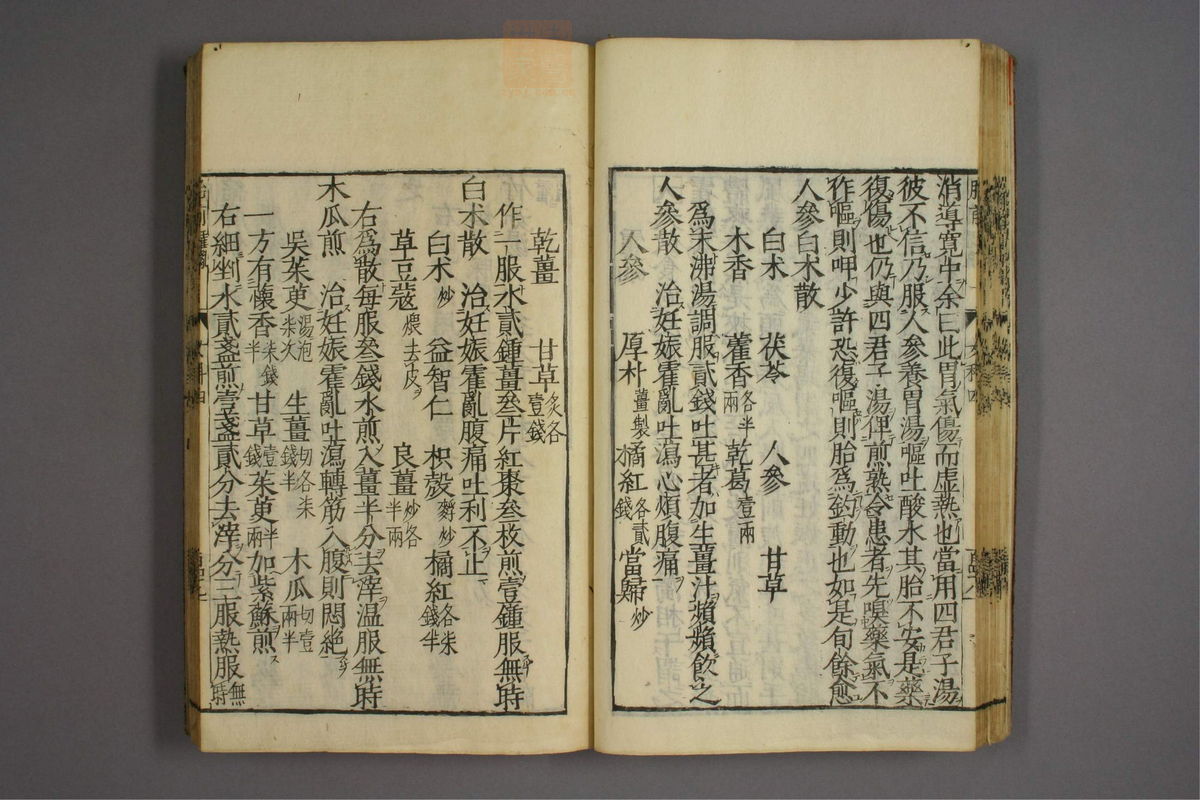 消導寬中余曰此胃氣傷而虛熱也當用四君子湯
彼不信乃服人參養胃湯嘔吐酸水其胎不安是藥
復傷也仍與四君子湯俾煎熟令患者先嗅藥氣不
作嘔則呷少許恐復嘔則胎爲釣動也如是旬餘愈
人參白朮散
白朮 茯苓 人參 甘草
木香 藿香各半兩 乾葛壹兩
爲末沸湯調服貳錢吐甚者加生薑汁頻頻飲之
人參散 治妊娠霍亂吐瀉心煩腹痛
人參 厚朴薑製 橘紅各貳錢 當歸炒
乾薑 甘草炙各壹錢
作一服水貳鍾薑叄片紅棗叄枚煎壹鍾服無時
白朮散 治妊娠霍亂腹痛吐利不止
白朮炒 益智仁 枳殼麪炒 橘紅各柒錢半
草豆蔻煨去皮 良薑炒各半兩
右爲散每服叄錢水煎入薑半分去滓温服無時
木瓜煎 治妊娠霍亂吐瀉轉筋入腹則悶絕
吳茱萸湯泡柒次 生薑切各柒錢半 木瓜切壹兩半
一方有懷香柒錢半 甘草壹錢 茱萸半兩 加紫蘇煎
右細剉水貳盞煎壹盞貳分去滓分三服熱服無時